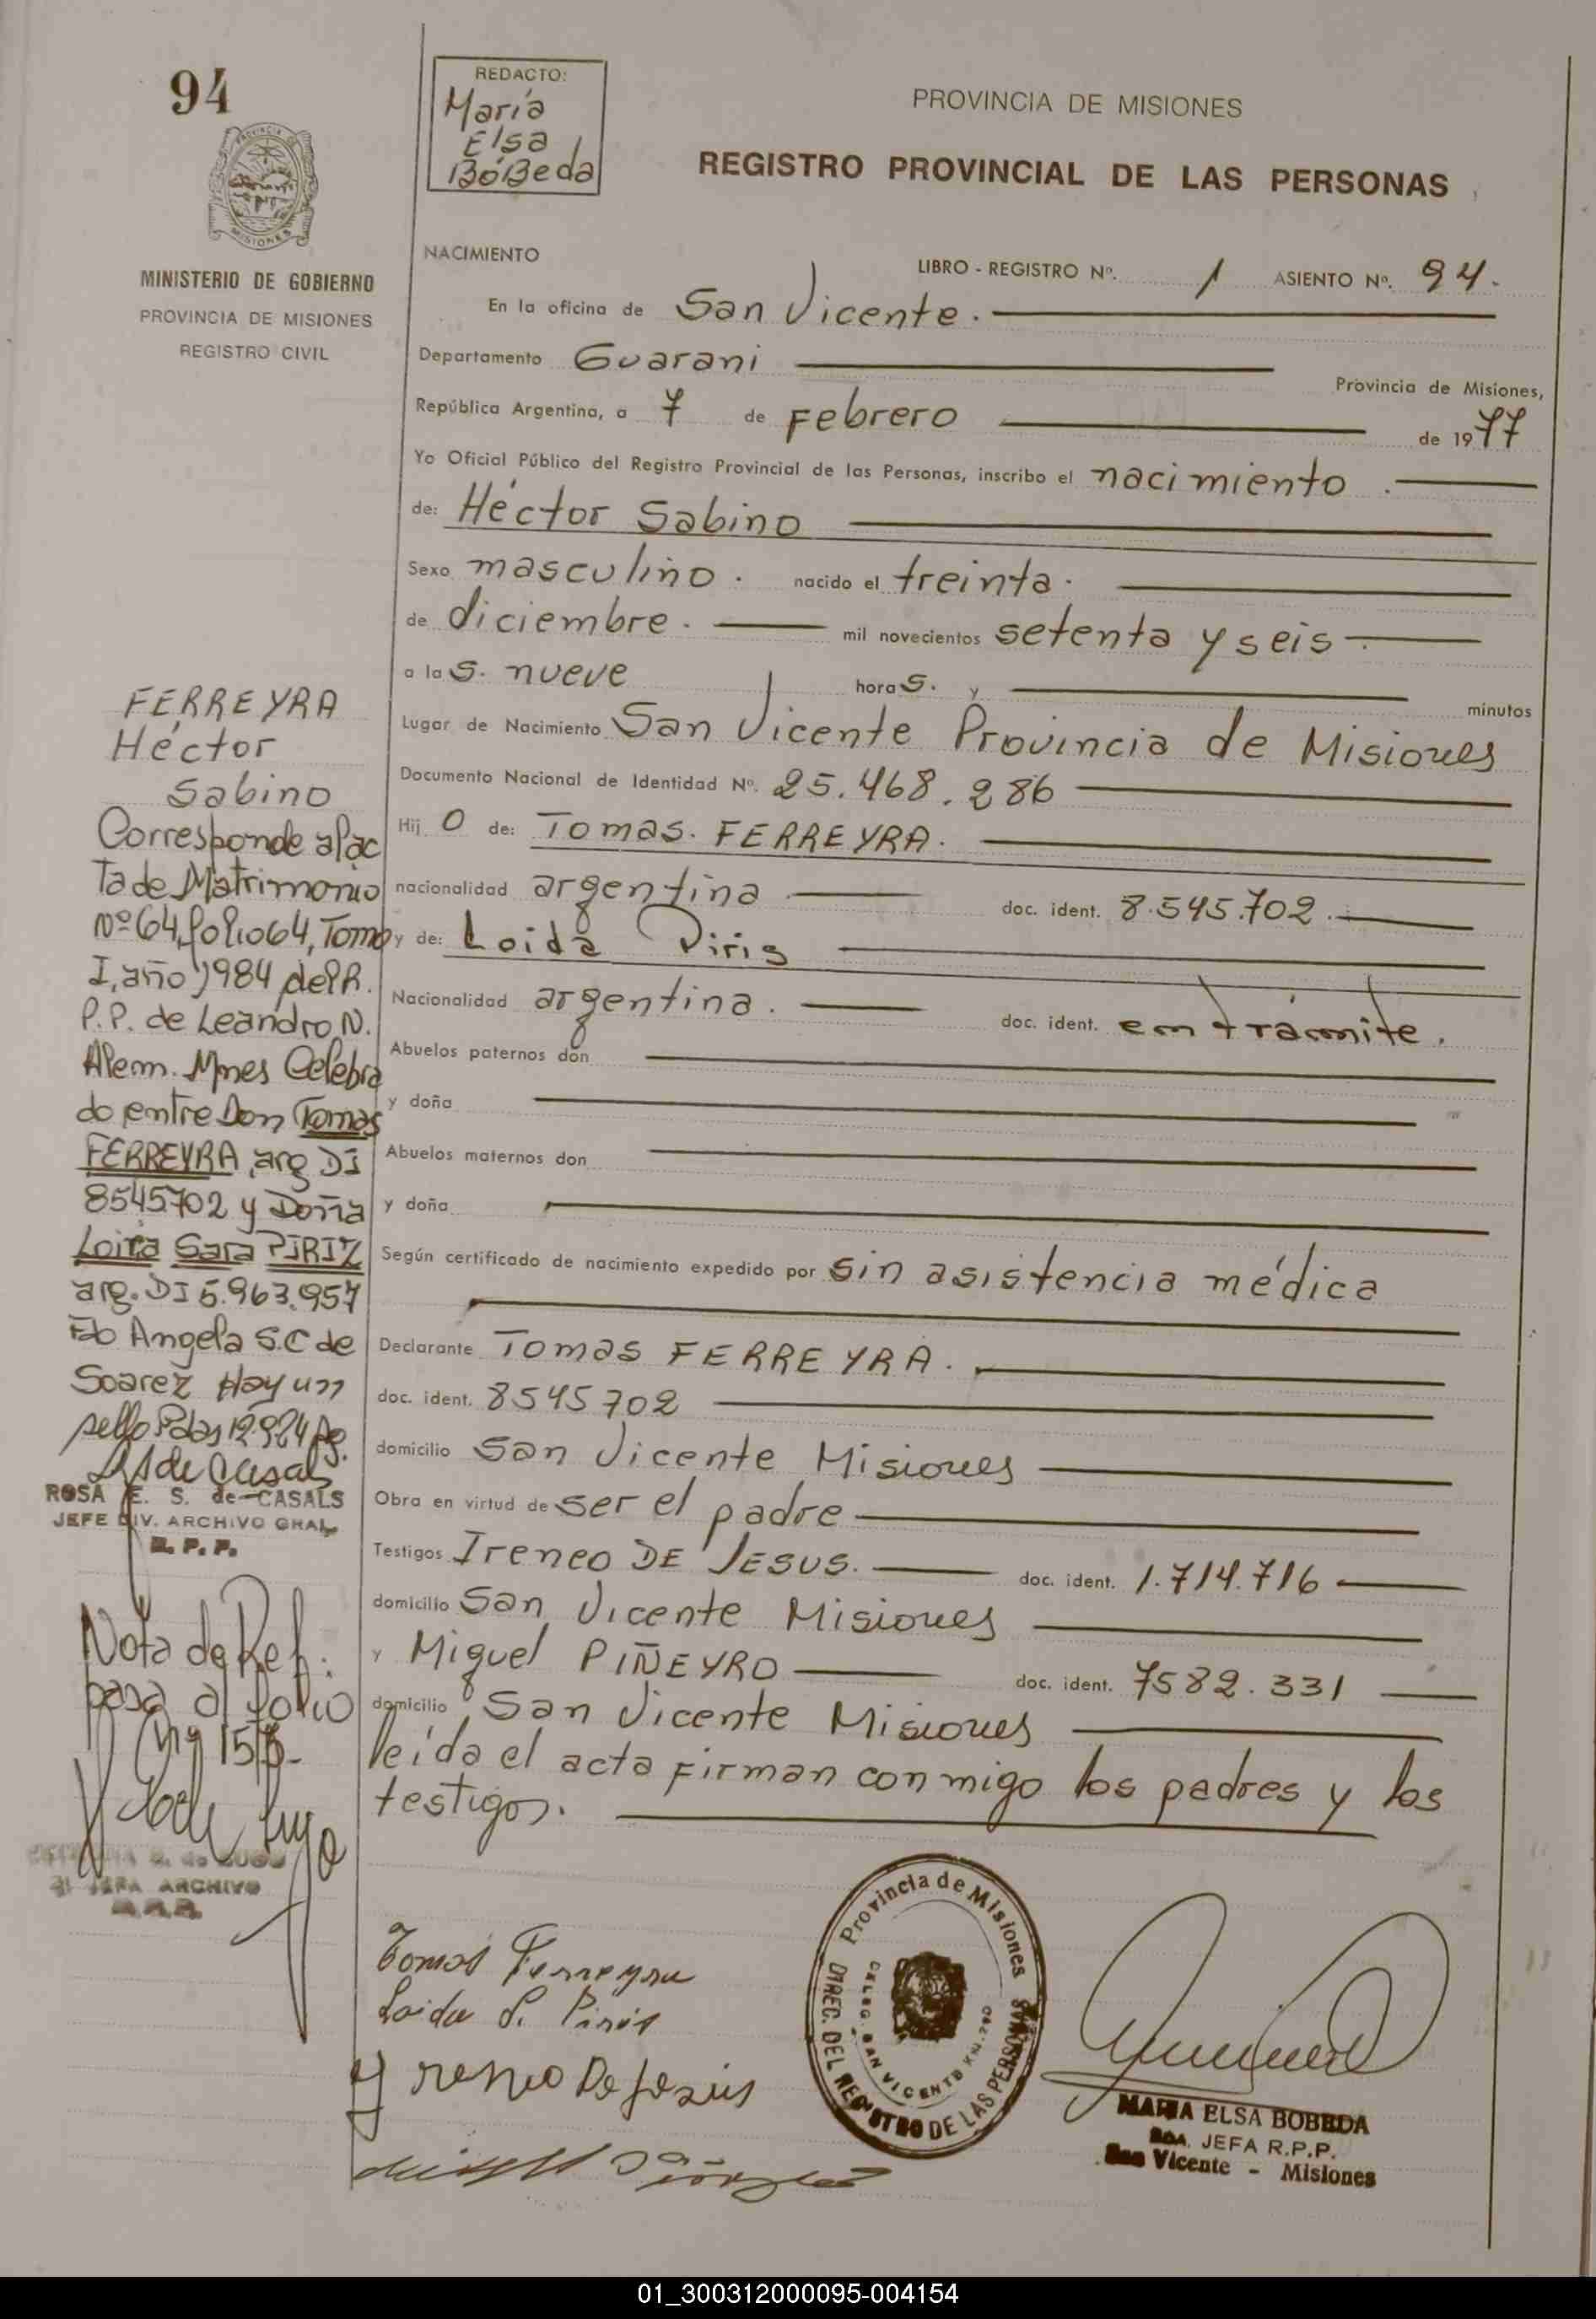 94
REDACTO:
María
Elsa
BóBeda
PROVINCIA DE MISIONES
REGISTRO PROVINCIAL DE LAS PERSONAS
MINISTERIO DE GOBIERNO
PROVINCIA DE MISIONES
REGISTRO CIVIL
NACIMIENTO
LIBRO - REGISTRO Nº. 1 ASIENTO Nº. 94.
En la oficina de San Vicente.
Departamento Guarani
Provincia de Misiones,
República Argentina, a 7 de Febrero de 1977
Yo Oficial Público del Registro Provincial de las Personas, inscribo el nacimiento.
de: Héctor Sabino
Sexo masculino. nacido el treinta.
de diciembre. mil novecientos setenta y seis
a las. nueve horas. y minutos
Lugar de Nacimiento San Vicente Provincia de Misiones
Documento Nacional de Identidad Nº. 25.468.286
Hij O de: Tomas. FERREYRA.
nacionalidad argentina doc. ident. 8.545.702.
y de: Loida Piris
Nacionalidad argentina. doc. ident. em trámite.
Abuelos paternos don
y doña
Abuelos maternos don
y doña
Según certificado de nacimiento expedido por sin asistencia médica
Declarante Tomas FERREYRA.
doc. ident. 8545702
domicilio San Vicente Misiones
Obra en virtud de ser el padre
Testigos Ireneo DE JESUS. doc. ident. 1.714.716
domicilio San Vicente Misiones
y Miguel PIÑEYRO doc. ident. 7582.331
domicilio San Vicente Misiones
leída el acta firman conmigo los padres y los
testigos.
FERREYRA
Héctor
Sabino
Corresponde al ac
Ta de Matrimonio
Nº 64, folio 64, Tomo
I, año 1984 del R.
P.P. de Leandro N.
Alem. Mnes Celebra
do entre Don Tomas
FERREYRA, arg DI
8545702 y Doña
Loida Sara PIRIZ
arg. DI 5.963.957
Fdo Angela S.C de
Soarez Hay un
sello Pdas
ROSA E. S. de CASALS
JEFE DIV. ARCHIVO GRAL
R. P. P.
Nota de Ref:
pasa al folio
JEFA ARCHIVO
R.P.P.
Tomas Ferreyra
Loida S. Piris
Yreneo De Jesus
Provincia de Misiones
DIREC. DEL REGISTRO DE LAS PERSONAS
DELEG. SAN VICENTE
MARIA ELSA BOBEDA
JEFA R.P.P.
San Vicente - Misiones
01_300312000095-004154